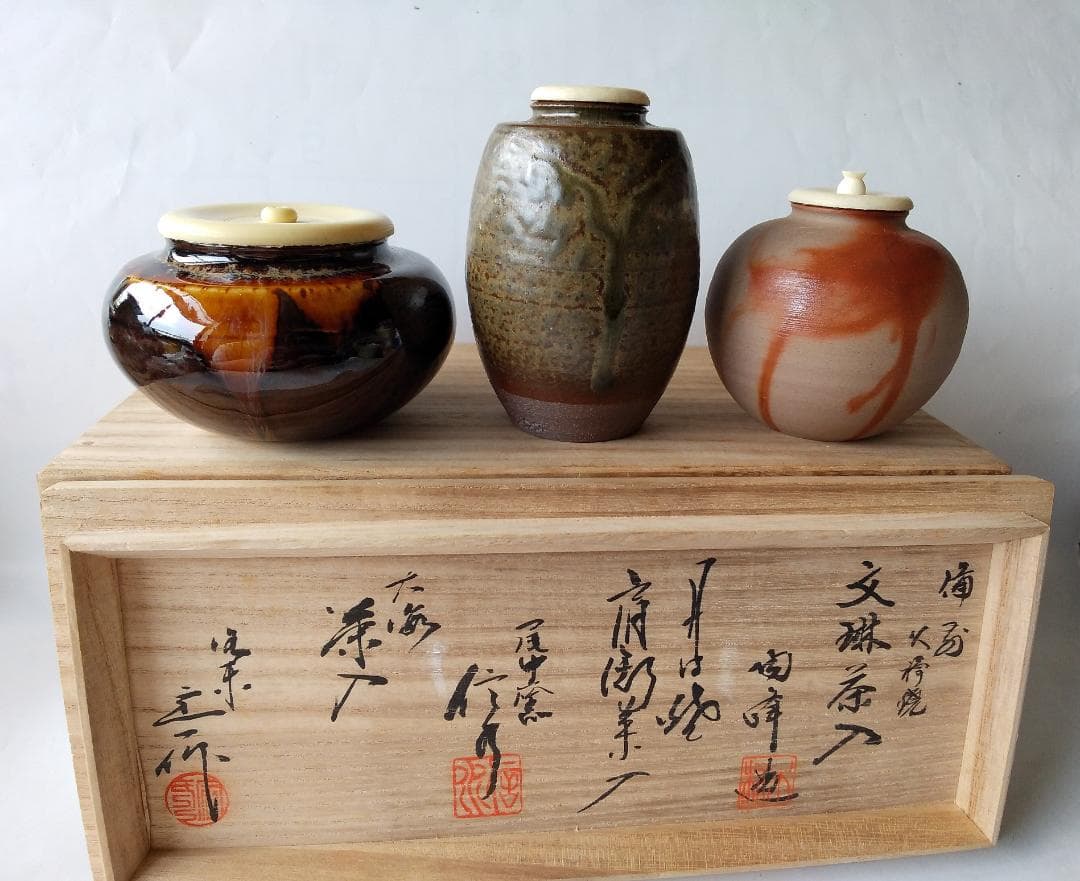 備前
火襷焼
文琳茶入
陶峰造
丹波焼
肩衝茶入
尾中窯
信水
大海
茶入
洛東